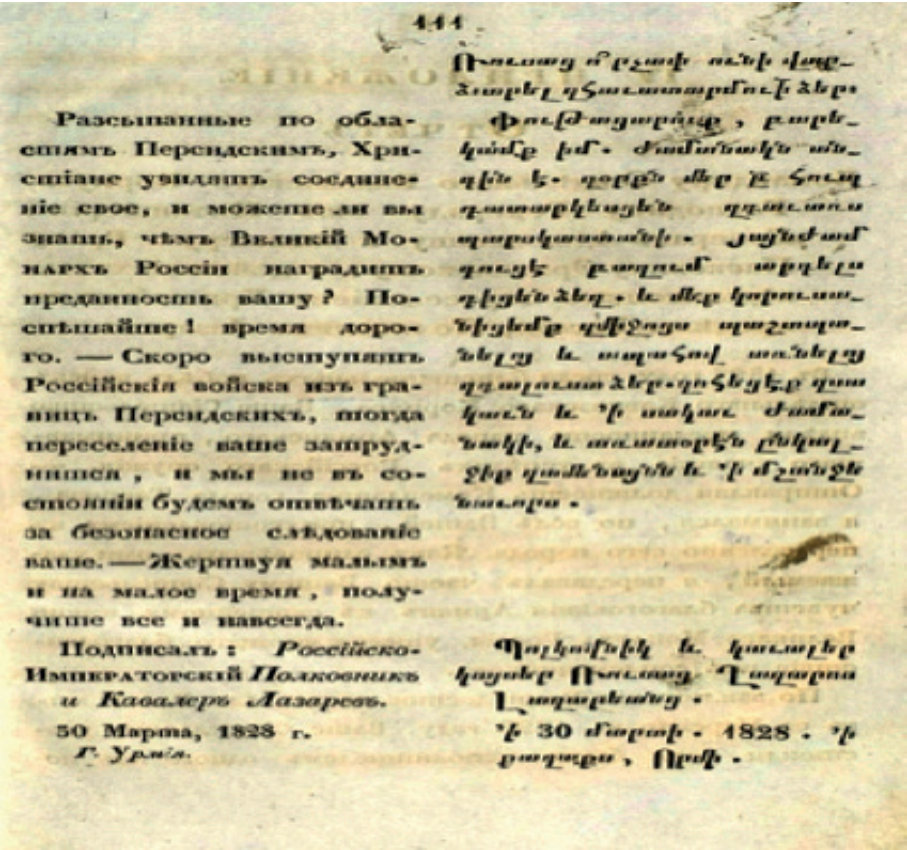 Разсыпанные по обла-
стямъ Персидскимъ, Хри-
стіане увидятъ соедине-
ніе свое, и можете ли вы
знать, чѣмъ Великій Мо-
нархъ Россіи наградитъ
преданность вашу? По-
спѣшайте! время доро-
го. — Скоро выступятъ
Россійскія войска изъ гра-
ницъ Персидскихъ, тогда
переселеніе ваше затруд-
нится, и мы не въ со-
стояніи будемъ отвѣчать
за безопасное слѣдованіе
ваше. — Жертвуя малымъ
и на малое время, полу-
чите все и навсегда.
Подписалъ: Россійско-
Императорскій Полковникъ
и Кавалеръ Лазаревъ.
30 Марта, 1828 г.
Г. Урмія.
Ռուսաց ո՛րչափ ունի վար_
ձատրել ձեր։
Փութացարուք, բարե_
կամք իմ. ժամանակն ան_
գին է. զօրքն մեր հուպ
դատարկեսցեն զգաւառս
պարսկաստանի. յայնժամ
գուցէ բազում արգելս
դիցեն ձեզ. և մեք կորուսա_
նիցեմք զմիջոցս պաշտպա_
նելոյ և ապահով առնելոյ
զգալուստ ձեր. զոհեցէք զսա
կաւն և ՚ի սակաւ ժամա_
նակի, և առատօրէն ընկալ_
ջիք զամենայնն և ՚ի մշտնջե
նաւորս.
Պօլկօվնիկ և կաւալեր
կայսեր Ռուսաց Ղազարոս
Լազարեանց.
՚ի 30 մարտի. 1828. ՚ի
քաղաքս, Որմի.